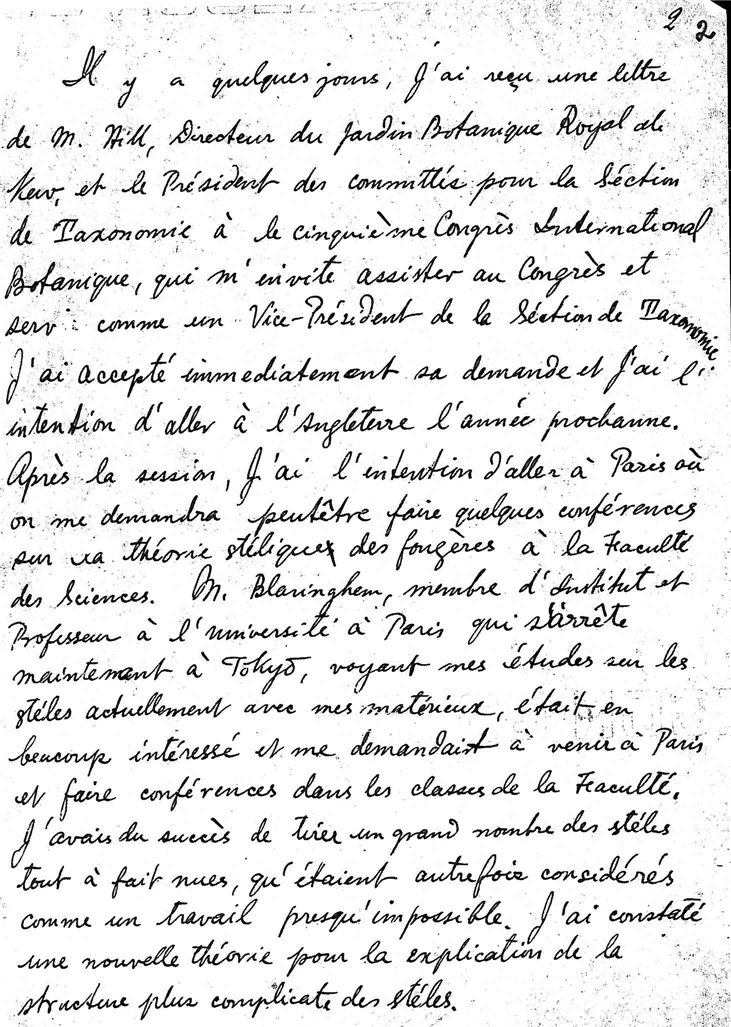 2 2
Il y a quelques jours, J'ai reçu une lettre
de M. Hill, Directeur du Jardin Botanique Royal de
Kew, et le Président des committés pour la Séction
de Taxonomie à le cinquième Congrès International
Botanique, qui m'invite assister au Congrès et
serv comme un Vice-Président de la Séction de Taxonomie
J'ai accepté immediatement sa demande et J'ai l'
intention d'aller à l'Angleterre l'année prochanne.
Après la session, J'ai l'intention d'aller à Paris où
on me demandra peutêtre faire quelques conférences
sur la théorie stélique des fougères à la Faculté
des Sciences. M. Blaringhem, membre d'Institut et
Professeur à l'université à Paris qui s'arrête
maintenant à Tokyō, voyant mes études sur les
stéles actuellement avec mes matérieux, était en
beaucoup intéressé et me demandait à venir à Paris
et faire conférences dans les classes de la Faculté.
J'avais du succès de tirer un grand nombre des stéles
tout à fait nues, qu'étaient autrefois considérés
comme un travail presqu'impossible. J'ai constaté
une nouvelle théorie pour la explication de la
structure plus complicate des stéles.